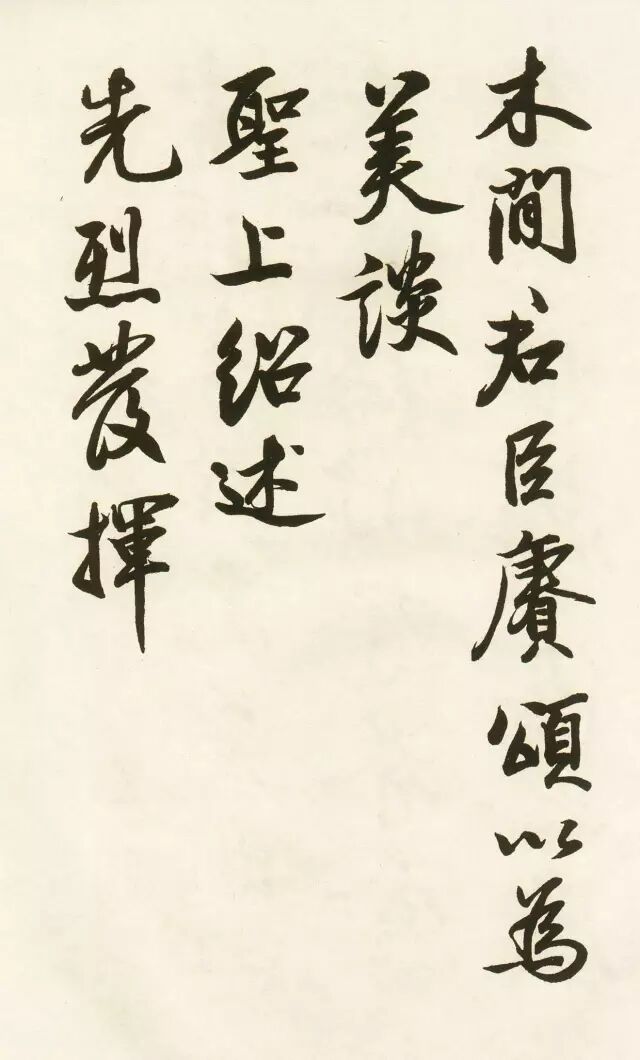 末簡君臣賡頌以為
美談
聖上紹述
先烈發揮